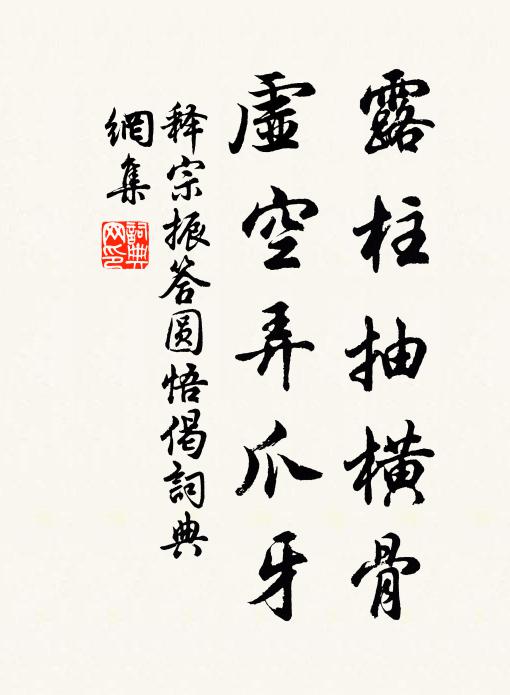 露柱抽橫骨
虛空弄爪牙
释宗振答圆悟偈詞典
網集
詞典
网印